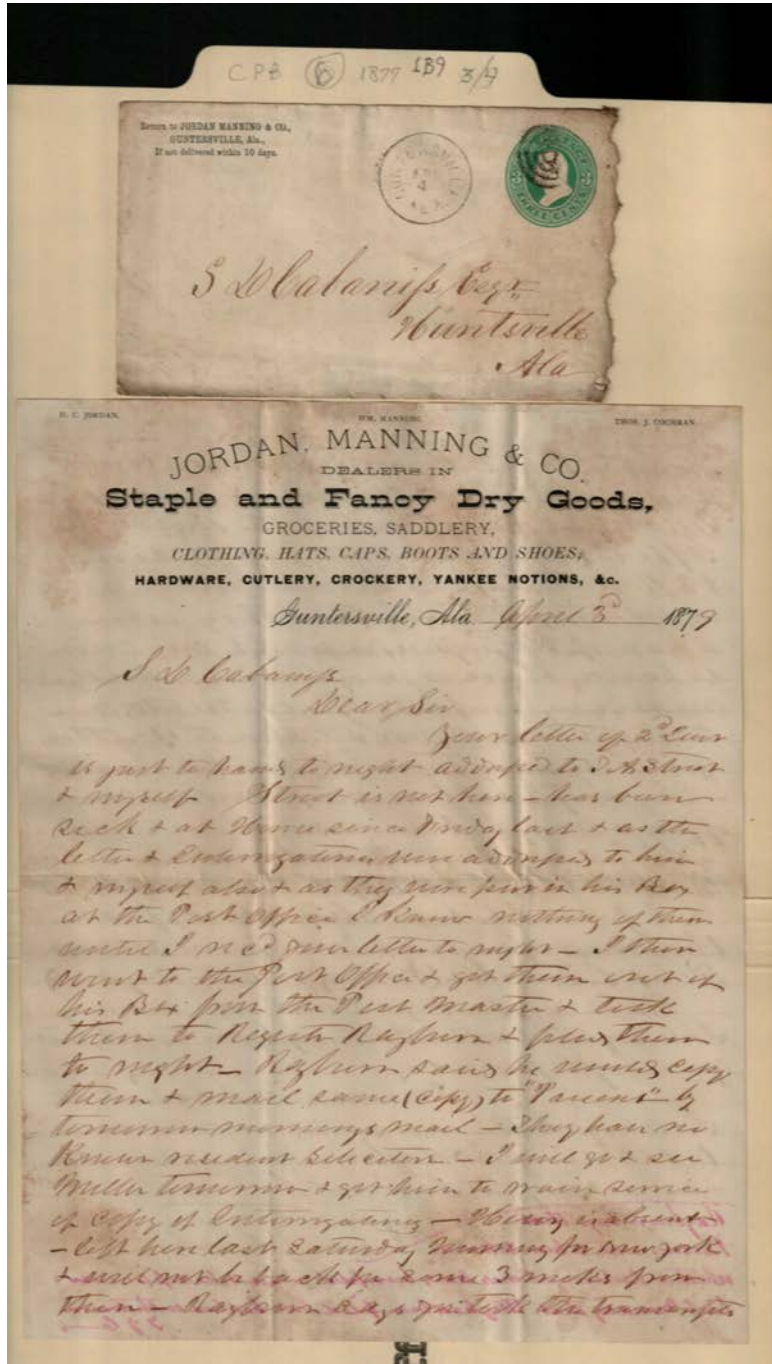 CPB 6 1877 1B9 3/4
Return to JORDAN MANNING & CO.,
GUNTERSVILLE, Ala.,
If not delivered within 10 days.
GUNTERSVILLE
APR
4
ALA
THREE CENTS
S D Cabaniss Esqr
Huntsville
Ala
H. C. JORDAN. WM. MANNING. THOS. J. COCHRAN.
JORDAN, MANNING & CO.
DEALERS IN
Staple and Fancy Dry Goods,
GROCERIES, SADDLERY,
CLOTHING, HATS, CAPS, BOOTS AND SHOES,
HARDWARE, CUTLERY, CROCKERY, YANKEE NOTIONS, &c.
Guntersville, Ala April 3d 1879
S D Cabaniss
Dear Sir
Your letter of 2d
is just to hand to night addressed to Street
& myself Street is not here – has been
sick & at Home since Friday last & as the
letter & Interrogatories were addressed to him
& myself also & as they were put in his Box
at the Post Office I knew nothing of them
until I recd your letter to night – I then
went to the Post Office & got them out of
his Box from the Post Master & took
them to Register Rayburn & filed them
to night – Rayburn said he would copy
them & mail same (copy) to "Parsens" by
tomorrow mornings mail – They have no
known resident Solicitor – I will go & see
Miller tomorrow & get him to waive service
of copy of Interrogatories – Henry is absent
– left here last Saturday morning for New York
& will not be back for some 3 weeks from
then – Rayburn says you took the transcripts